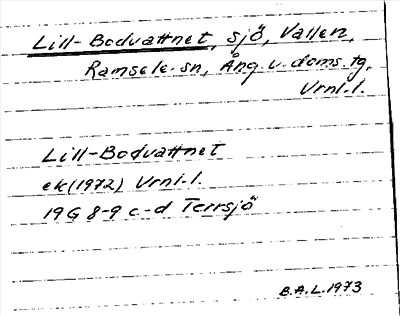 Lill-Bodvattnet, sjö, Vallen,
Ramsele sn, Ång. v. doms. tg,
Vrnl.l.
Lill-Bodvattnet
ek (1972) Vrnl.l.
19G 8-9 c-d Terrsjö
B.A.L. 1973